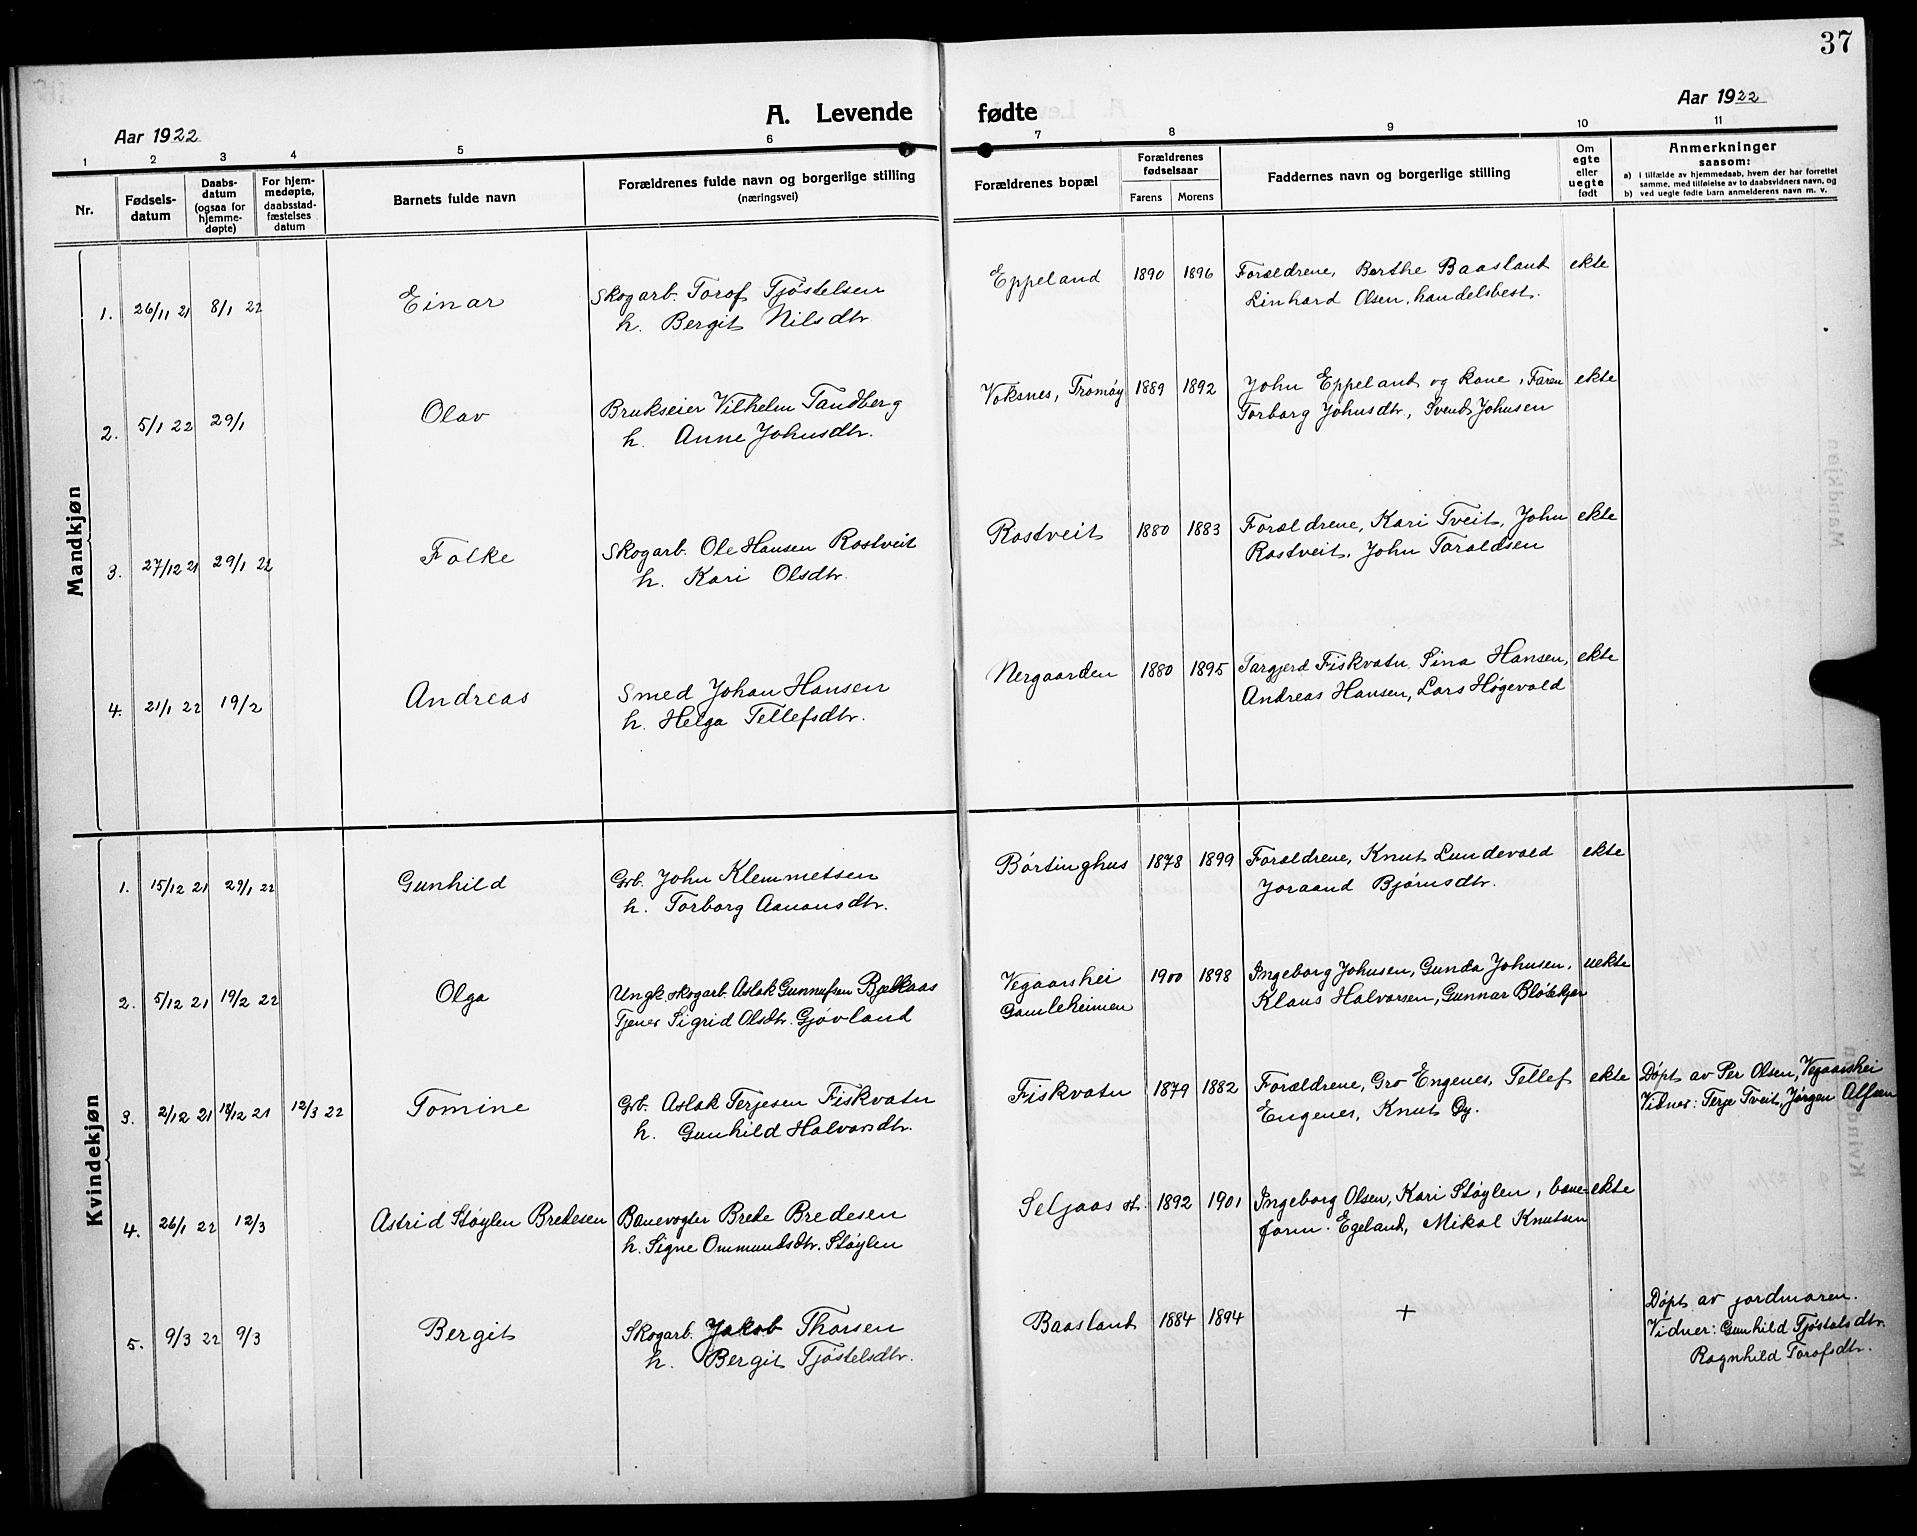 37
A. Levende fødte
Aar 1922
Aar 1922
1 2 3 4 5 6 7 8 9 10 11
Nr.
Fødsels-
datum
Daabs-
datum
(ogsaa for
hjemme-
døpte)
For hjem-
medøpte,
daabsstad-
fæstelses
datum
Barnets fulde navn
Forældrenes fulde navn og borgerlige stilling
(næringsvei)
Forældrenes bopæl
Forældrenes
fødselsaar
Farens Morens
Faddernes navn og borgerlige stilling
Om
egte
eller
uegte
født
Anmerkninger
saasom:
a) i tilfælde av hjemmedaab, hvem der har forrettet
samme, med tilføielse av to daabsvidners navn, og
b) ved uegte fødte barn anmelderens navn m. v.
Mandkjøn
1. 26/11 21 8/1 22 Einar Skogarb. Torof Tjøstelsen Eppeland 1890 1896 Forældrene, Berthe Baasland ekte
h. Bergit Nilsdtr. Linhard Olsen, handelsbest.
2. 5/1 22 29/1 Olav Brukseier Vilhelm Tandberg Voksnes, Tromøy 1889 1892 John Eppeland og kone, Faren ekte
h. Anne Johnsdtr. Torborg Johnsdtr, Svend Johnsen
3. 27/12 21 29/1 22 Folke Skogarb. Ole Hansen Rostveit Rostveit 1880 1883 Forældrene, Kari Tveit, John ekte
h. Kari Olsdtr. Rostveit, John Taraldsen
4. 21/1 22 19/2 Andreas Smed Johan Hansen Nergaarden 1880 1895 Targjerd Fiskvatn, Sina Hansen, ekte
h. Helga Tellefsdtr. Andreas Hansen, Lars Høgevold
Kvindekjøn
1. 15/12 21 29/1 22 Gunhild Grb. John Klemmetsen Børtinghus 1878 1899 Forældrene, Knut Lundevold ekte
h. Torborg Aanonsdtr. Joraand Bjørnsdtr.
2. 5/12 21 19/2 22 Olga Ungk. skogarb. Aslak Gunnufsen Vegaarshei 1900 1898 Ingeborg Johnsen, Gunda Johnsen, uekte
Tjener Sigrid Olsdtr. Gjøvland Gamleheimen Klaus Halvorsen, Gunnar
3. 2/12 21 18/12 21 12/3 22 Tomine Grb. Aslak Terjesen Fiskvatn Fiskvatn 1879 1882 Forældrene, Gro Engenes, Tellef ekte Døpt av Per Olsen, Vegaarshei
h. Gunhild Halvorsdtr. Engenes, Knut Øy. Vidner: Terje Tveit, Jørgen Alfsen
4. 26/1 22 12/3 Astrid Støylen Bredesen Banevogter Brede Bredesen Seljaas st. 1892 1901 Ingeborg Olsen, Kari Støylen, bane- ekte
h. Signe Ommundsdtr. Støylen form. Egeland, Mikal Knutsen
5. 9/3 22 9/3 Bergit Skogarb. Jakob Thorsen Baasland 1884 1894 + Døpt av jordmoren.
h. Bergit Tjøstelsdtr. Vidner: Gunhild Tjøstalsdtr.
Ragnhild Torofsdtr.